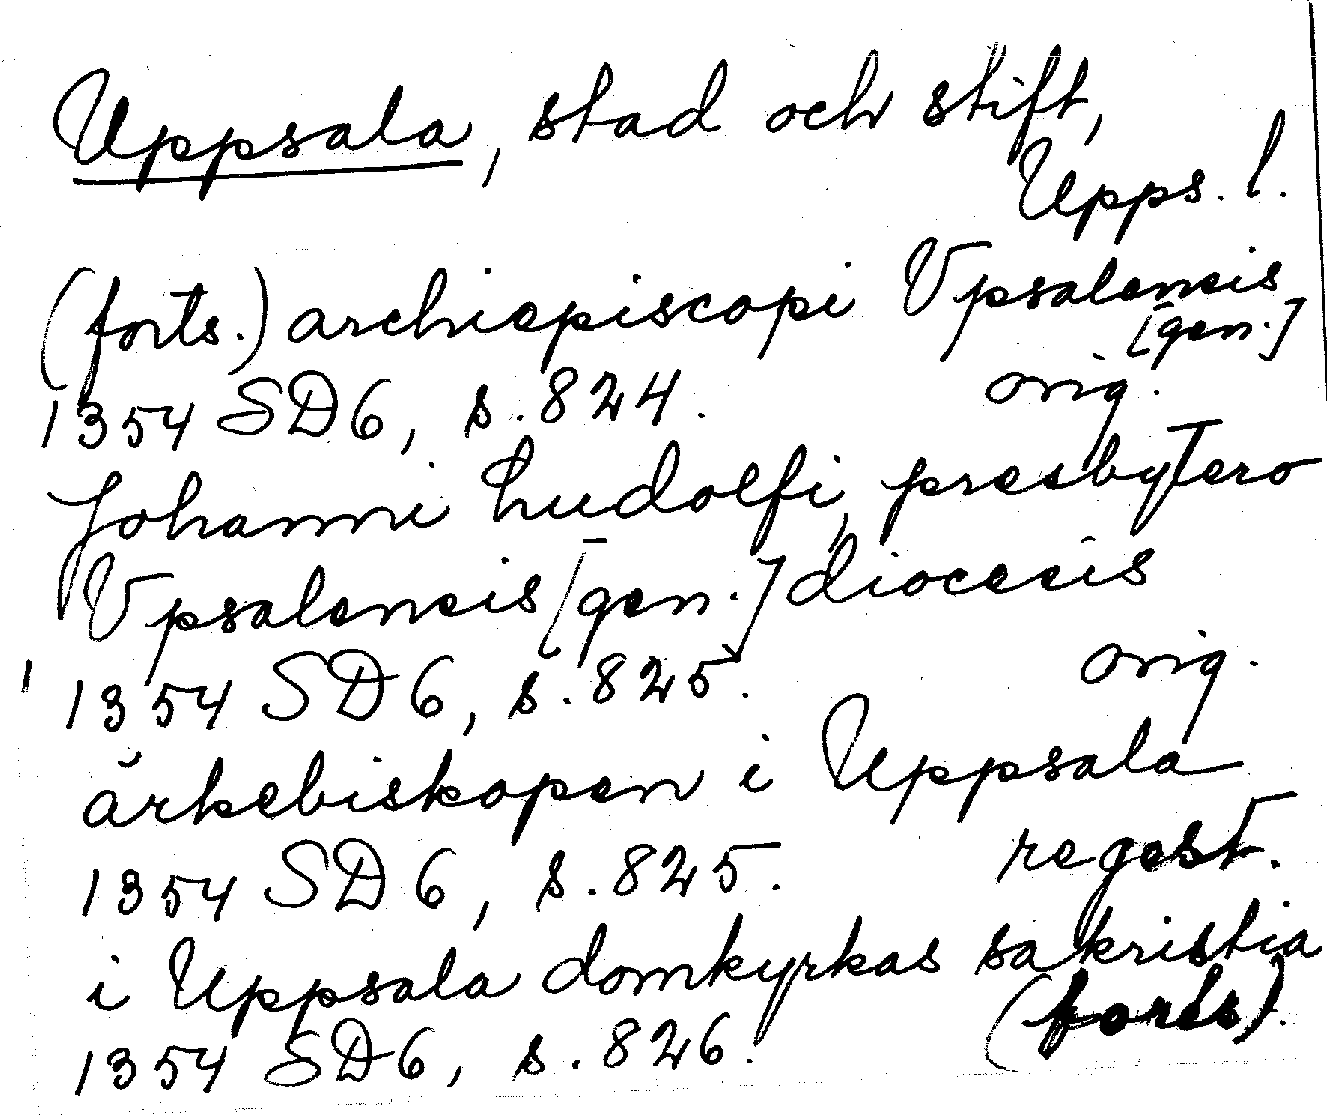 Uppsala, stad och stift,
Upps. l.
(forts.) archiepiscopi Vpsalensis
[gen.]
1354 SD6, s. 824. orig.
Johanni Ludolfi, presbytero
Vpsalensis [gen.] diocesis
1354 SD6, s. 825. orig.
ärkebiskopen i Uppsala
1354 SD6, s. 825. regest.
i Uppsala domkyrkas sakristia
1354 SD6, s. 826. (forts).